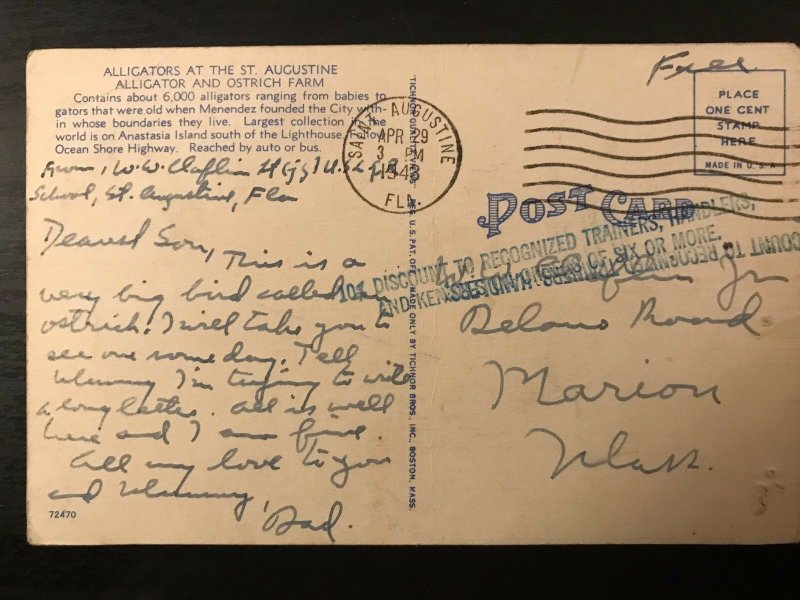 ALLIGATORS AT THE ST. AUGUSTINE
ALLIGATOR AND OSTRICH FARM
Contains about 6,000 alligators ranging from babies to
gators that were old when Menendez founded the City with-
in whose boundaries they live. Largest collection in the
world is on Anastasia Island south of the Lighthouse. Follow
Ocean Shore Highway. Reached by auto or bus.
From, W.W. Claflin Lt (jg) U.S.
School, St. Augustine, Fla
Dearest Son,
This is a
very big bird called an
ostrich. I will take you to
see one some day. Tell
Mummy I'm trying to write
a long letter. All is well
here and I am fine.
All my love to you
and Mummy,
Dad.
72470
TICHNOR QUALITY VIEWS REG. U.S. PAT. OFF. MADE ONLY BY TICHNOR BROS., INC., BOSTON, MASS.
SAINT AUGUSTINE
APR 29
3 PM
1943
FLA.
Free
PLACE
ONE CENT
STAMP
HERE
MADE IN U.S.A
POST CARD
10% DISCOUNT TO RECOGNIZED TRAINERS, HANDLERS,
AND KENNELS OF SIX OR MORE.
Claflin Jr
Delano Road
Marion
Mass.